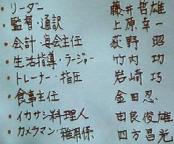 リーダー 藤井哲雄
監督・通訳 上原幸一
・会計・渉外主任 荻野 昭
・生活指導・ラージャー 竹内 功
・トレーナー・指圧 岩崎 巧
・食事主任 金田 忍
・イカサン料理人 由良俊雄
・カメラマン・雑用係 四方昌光